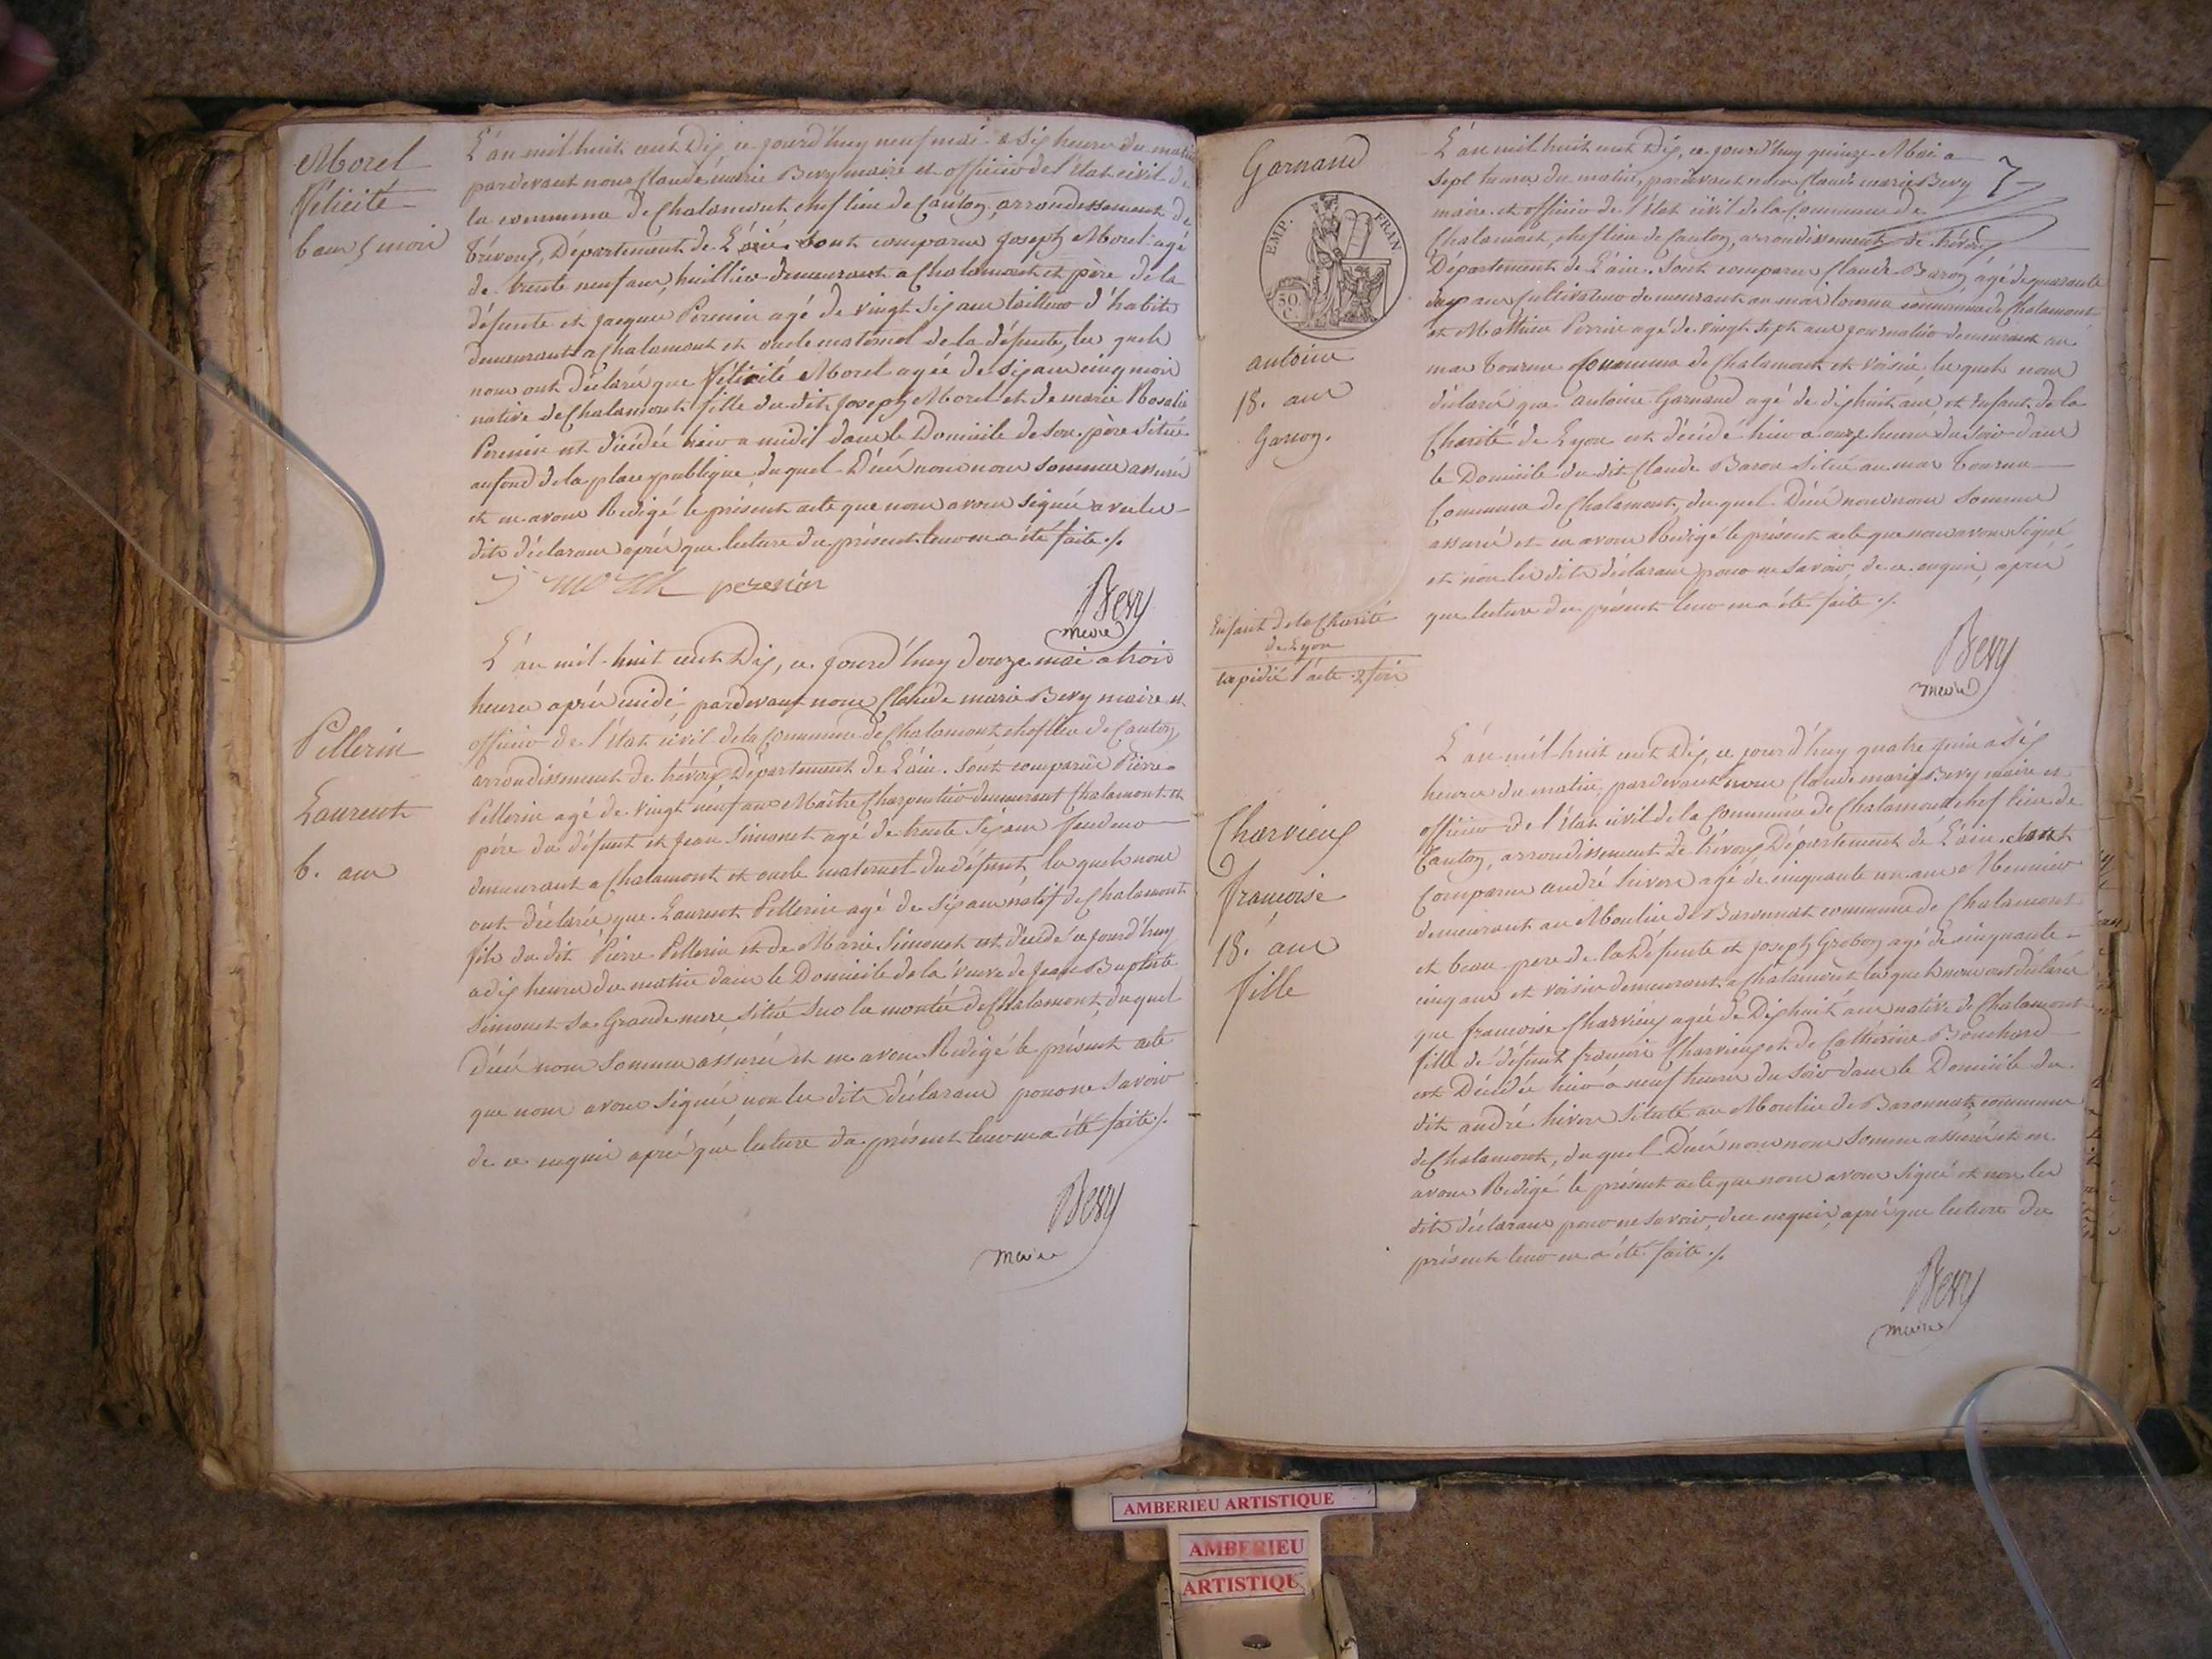 Morel
Félicité
6 ans 5 mois
L'an mil huit cent Dix ce jourd'huy neuf mai a six heures du matin
pardevant nous Claude marie Bevy maire et officier de l'Etat civil de
la commune de Chalamont chef lieu de Canton, arrondissement de
trévoux, Département de L'ain, sont comparus Joseph Morel agé
de trente neuf ans, huillier demeurant a Chalamont et père de la
défunte et Jacques Perenin agé de vingt six ans tailleur d'habits
demeurant a Chalamont et oncle maternel de la défunte, les quels
nous ont déclaré que Félicité Morel agée de six ans cinq mois
native de Chalamont fille du dit Joseph Morel et de marie Rosalie
Perenin est décédée hier a midi dans le Domicile de son père situé
au fond de la place publique, du quel Décés nous nous sommes assurés
et en avons Redigé le présent acte que nous avons signé avec les
dits déclarans après que lecture du présent leur en a été faite ./.
J morel perenin
Bevy
maire
Pellerin
Laurent
6. ans
L'an mil huit cent Dix, ce jourd'huy douze mai a trois
heures après midi, pardevant nous Claude marie Bevy maire et
officier de l'Etat civil de la Commune de Chalamont chef lieu de Canton
arrondissement de trévoux Département de L'ain. Sont comparus Pierre
Pellerin agé de vingt neuf ans Maitre Charpentier demeurant Chalamont et
père du défunt et Jean Simonet agé de trente six ans
demeurant a Chalamont et oncle maternel du défunt, les quels nous
ont déclaré que Laurent Pellerin agé de six ans natif de Chalamont
fils du dit Pierre Pellerin et de Marie Simonet est décédé ce jourd'huy
a dix heures du matin dans le Domicile de la veuve de Jean Baptiste
Simonet sa Grande mere, situé sur la montée de Chalamont, du quel
Décés nous sommes assurés et en avons Redigé le présent acte
que nous avons signé non les dits déclarans pour ne savoir
de ce enquis après que lecture du présent leur en a été faite ./.
Bevy
maire
7
Garnand
EMP. FRAN
50. C.
antoine
18. ans
Garçon.
Enfant de la Charité
de Lyon
expédié l'acte 2 fois
L'an mil huit cent Dix, ce jourd'huy quinze Mai a
sept heures du matin, pardevant nous Claude marie Bevy
maire et officier de l'Etat civil de la Commune de
Chalamont, chef lieu de Canton, arrondissement de trévoux
Département de L'ain. Sont comparus Claude Baron, agé de quarante
ans Cultivateur demeurant au mas tournu commune de Chalamont
et Mathieu Perrin agé de vingt sept ans journalier demeurant au
mas tournu Commune de Chalamont et voisin, les quels nous
déclaré que antoine Garnand agé de dix huit ans et Enfant de la
Charité de Lyon est décédé hier a onze heures du soir dans
le Domicile du dit Claude Baron situé au mas tournu
Commune de Chalamont, du quel Décés nous nous sommes
assurés et en avons Redigé le présent acte que nous avons signé
et non les dits déclarans pour ne savoir, de ce enquis, après
que lecture du présent leur en a été faite ./.
Bevy
maire
Charvieux
françoise
18. ans
fille
L'an mil huit cent Dix, ce jourd'huy quatre juin a six
heures du matin, pardevant nous Claude marie Bevy maire et
officier de l'état civil de la Commune de Chalamont chef lieu de
Canton, arrondissement de trévoux Département de L'ain. sont
Comparus andré hivers agé de cinquante un ans Meunier
demeurant au Moulin de Baronnat commune de Chalamont
et beau pere de la défunte et joseph Grobon agé de cinquante
cinq ans et voisin demeurant a Chalamont les quels nous ont déclaré
que françoise Charvieux agée de Dix huit ans native de Chalamont
fille de défunt françois Charvieux et de Catherine Bouchard
est Décédée hier a neuf heures du soir dans le Domicile du
dit andré hivers situé au Moulin de Baronnat, commune
de Chalamont, du quel Décés nous nous sommes assurés et en
avons Redigé le présent acte que nous avons signé et non les
dits déclarans pour ne savoir, de ce enquis, après que lecture du
présent leur en a été faite ./.
Bevy
maire
AMBERIEU ARTISTIQUE
AMBERIEU
ARTISTIQUE